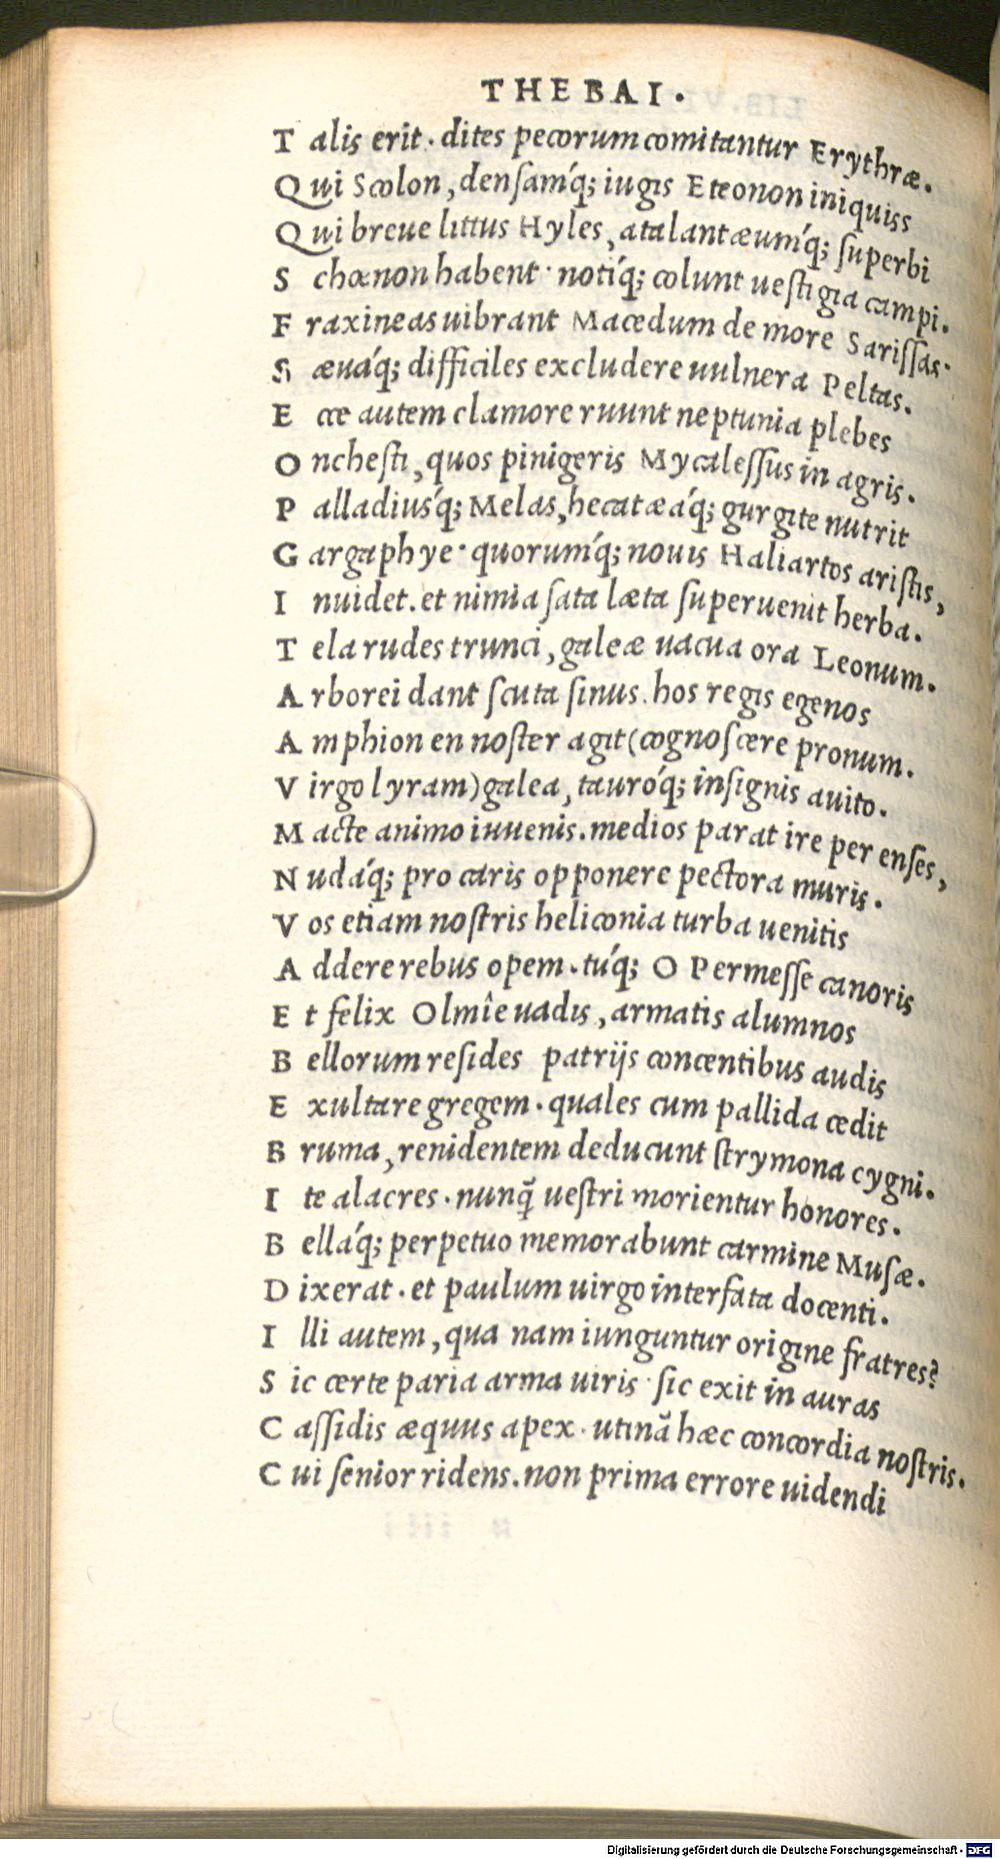 THEBAI.
T alis erit. dites pecorum comitantur Erythræ.
Q ui Scolon, densamq́; iugis Eteonon iniquiss
Q ui breue littus Hyles, atalantæumq́; superbi
S chœnon habent. notiq́; colunt uestigia campi.
F raxineas uibrant Macedum de more Sarissas.
S æuaq́; difficiles excludere uulnera Peltas.
E cce autem clamore ruunt neptunia plebes
O nchesti, quos pinigeris Mycalessus in agris.
P alladiusq́; Melas, hecatæaq́; gurgite nutrit
G argaphye. quorumq́; nouis Haliartos aristis,
I nuidet. et nimia sata læta superuenit herba.
T ela rudes trunci, galeæ uacua ora Leonum.
A rborei dant scuta sinus. hos regis egenos
A mphion en noster agit (cognoscere pronum.
V irgo lyram) galea, tauroq́; insignis auito.
M acte animo iuuenis. medios parat ire per enses,
N udaq́; pro caris opponere pectora muris.
V os etiam nostris heliconia turba uenitis
A ddere rebus opem. tuq́; O Permesse canoris
E t felix Olmîe uadis, armatis alumnos
B ellorum resides patrijs concentibus audis
E xultare gregem. quales cum pallida cedit
B ruma, renidentem deducunt strymona cygni.
I te alacres. nunq̃ uestri morientur honores.
B ellaq́; perpetuo memorabunt carmine Musæ.
D ixerat. et paulum uirgo interfata docenti.
I lli autem, qua nam iunguntur origine fratres?
S ic certe paria arma uiris. sic exit in auras
C assidis æquus apex. utinã hæc concordia nostris.
C ui senior ridens. non prima errore uidendi
Digitalisierung gefördert durch die Deutsche Forschungsgemeinschaft - DFG